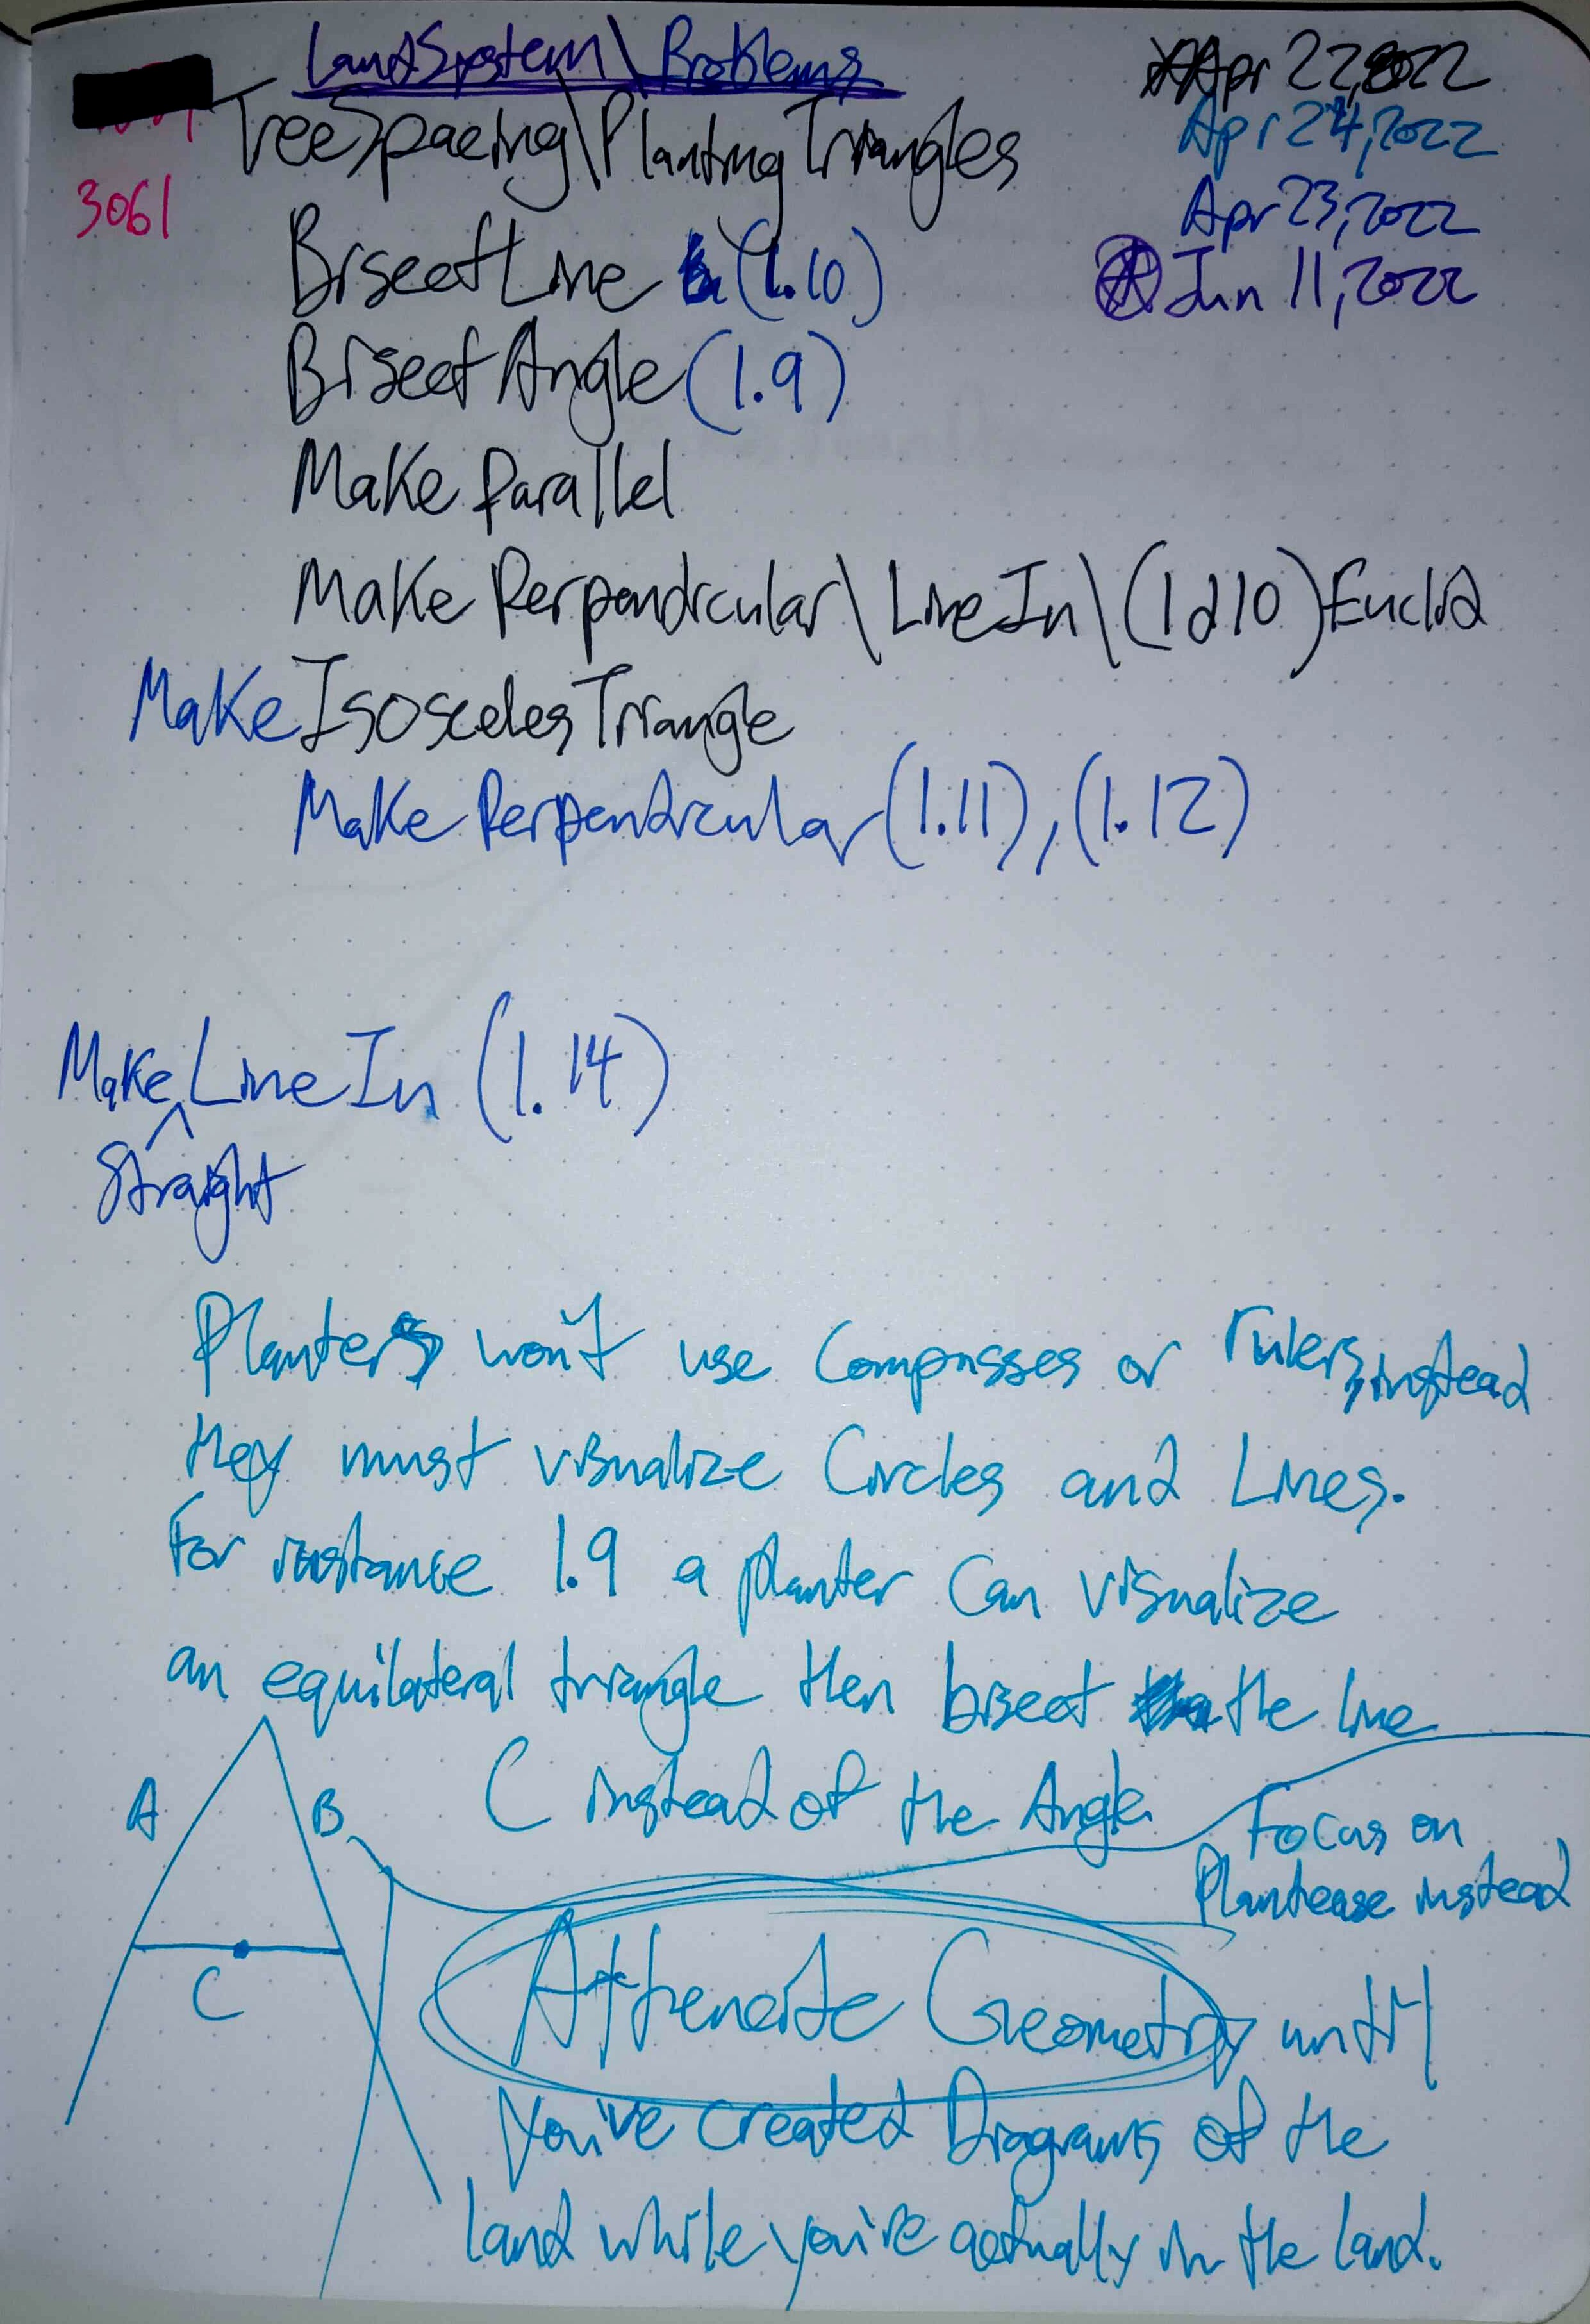 LandSystem\Problems
Apr 22, 2022
TreeSpacing\PlantingTriangles
Apr 24, 2022
3061
Apr 23, 2022
BisectLine (1.10)
Jun 11, 2022
BisectAngle (1.9)
Make Parallel
Make Perpendicular\LineIn\(1d10)Euclid
Make Isosceles Triangle
Make Perpendicular (1.11), (1.12)
Make LineIn (1.14)
Straight
Planters won't use Compasses or rulers, instead
they must visualize Circles and Lines.
For instance 1.9 a planter can visualize
an equilateral triangle then bisect the line
C instead of the Angle
A
B
Focus on
Plantease instead
C
Geometry until
you've created Diagrams of the
land while you're actually in the land.